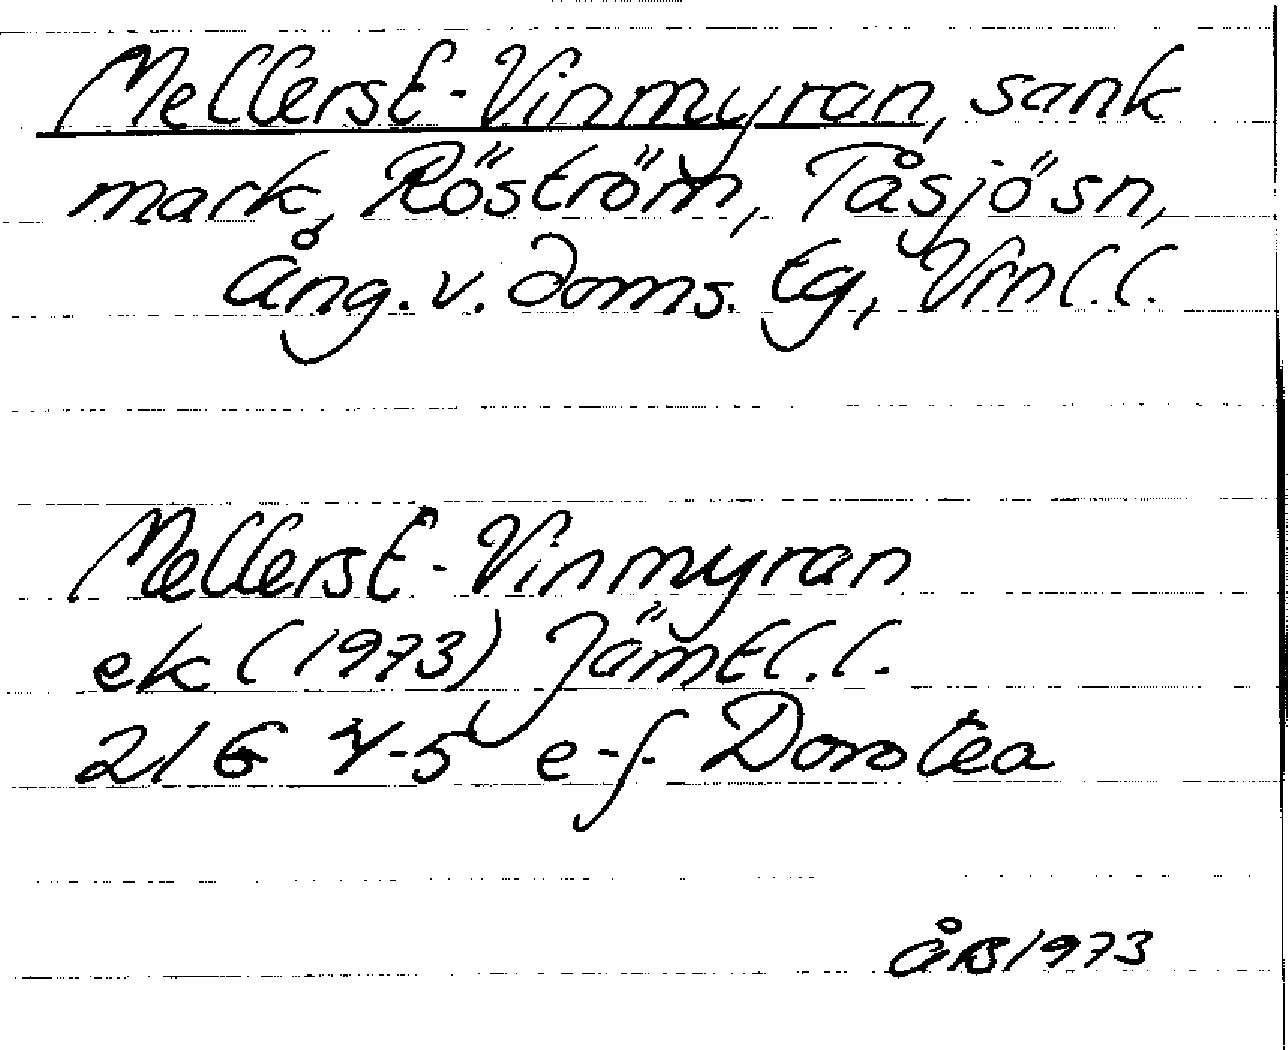 Mellerst-Vinmyran, sank
mark, Röström, Tåsjö sn,
Ång. v. doms. tg, Vrnl.l.
Mellerst-Vinmyran
ek (1973) Jämtl.l.
21G 4-5 e-f Dorotea
ÅB 1973